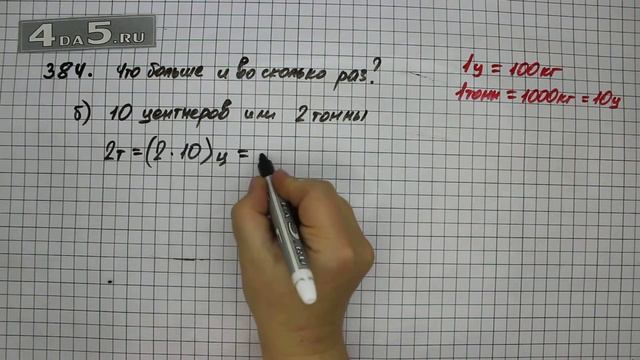 4DA5.RU
384. Что больше и во сколько раз?
1ц = 100кг
1тонн = 1000кг = 10ц
б) 10 центнеров или 2 тонны
2т = (2 · 10) ц =